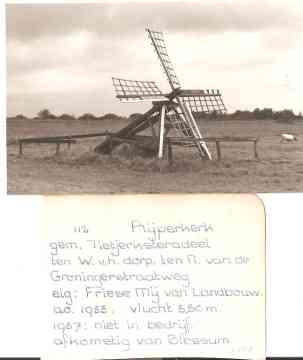 113 Rijperkerk
gem. Tietjerksteradeel
ten W. v.h. dorp, ten N. van de
Groningerstraatweg
eig: Friese Mij van Landbouw.
ao. 1955, vlucht 5,50 m.
1957: niet in bedrijf.
afkomstig van Blessum